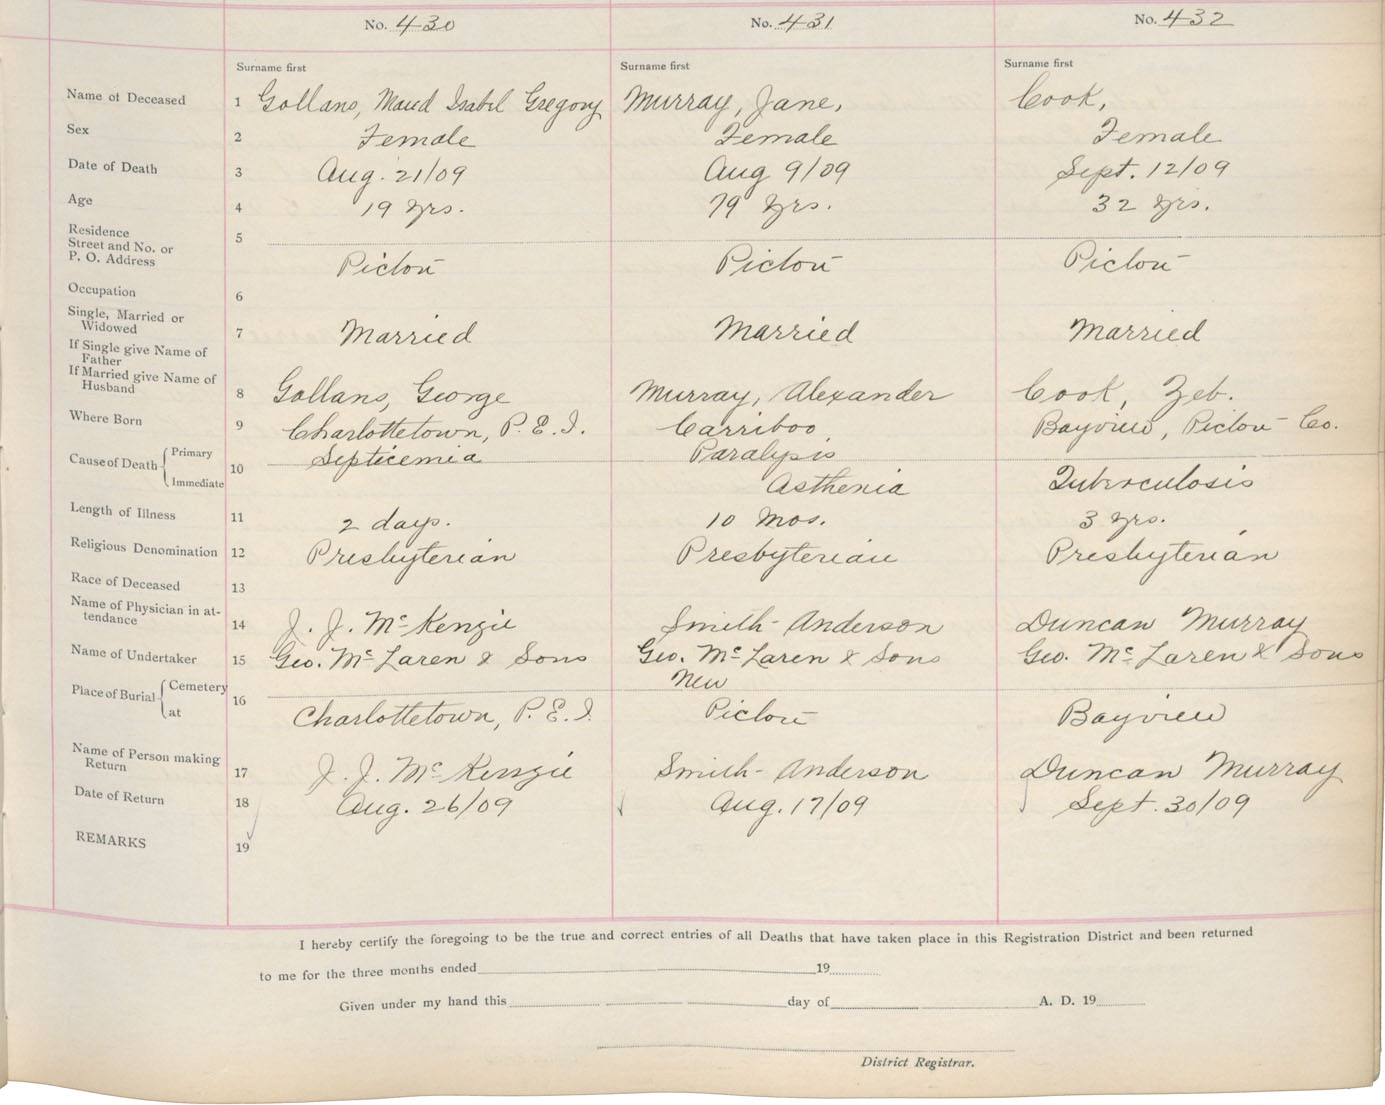 No. 430 No. 431 No. 432
Surname first Surname first Surname first
Name of Deceased 1 Gollans, Maud Isabel Gregory Murray, Jane, Cook,
Sex 2 Female Female Female
Date of Death 3 Aug. 21/09 Aug 9/09 Sept. 12/09
Age 4 19 yrs. 79 yrs. 32 yrs.
Residence
Street and No. or 5
P. O. Address Pictou Pictou Pictou
Occupation 6
Single, Married or
Widowed 7 Married Married Married
If Single give Name of
Father
If Married give Name of
Husband 8 Gollans, George Murray, Alexander Cook, Zeb.
Where Born 9 Charlottetown, P.E.I. Carriboo Bayview, Pictou Co.
Cause of Death Primary 10 Septicemia Paralysis
Immediate Asthenia Tuberculosis
Length of Illness 11 2 days. 10 mos. 3 yrs.
Religious Denomination 12 Presbyterian Presbyterian Presbyterian
Race of Deceased 13
Name of Physician in at-
tendance 14 J. J. McKenzie Smith-Anderson Duncan Murray
Name of Undertaker 15 Geo. McLaren & Sons Geo. McLaren & Sons Geo. McLaren & Sons
Place of Burial Cemetery 16 New
at Charlottetown, P.E.I. Pictou Bayview
Name of Person making
Return 17 J. J. McKenzie Smith-Anderson Duncan Murray
Date of Return 18 Aug. 26/09 Aug. 17/09 Sept. 30/09
REMARKS 19
I hereby certify the foregoing to be the true and correct entries of all Deaths that have taken place in this Registration District and been returned
to me for the three months ended 19
Given under my hand this day of A. D. 19
District Registrar.